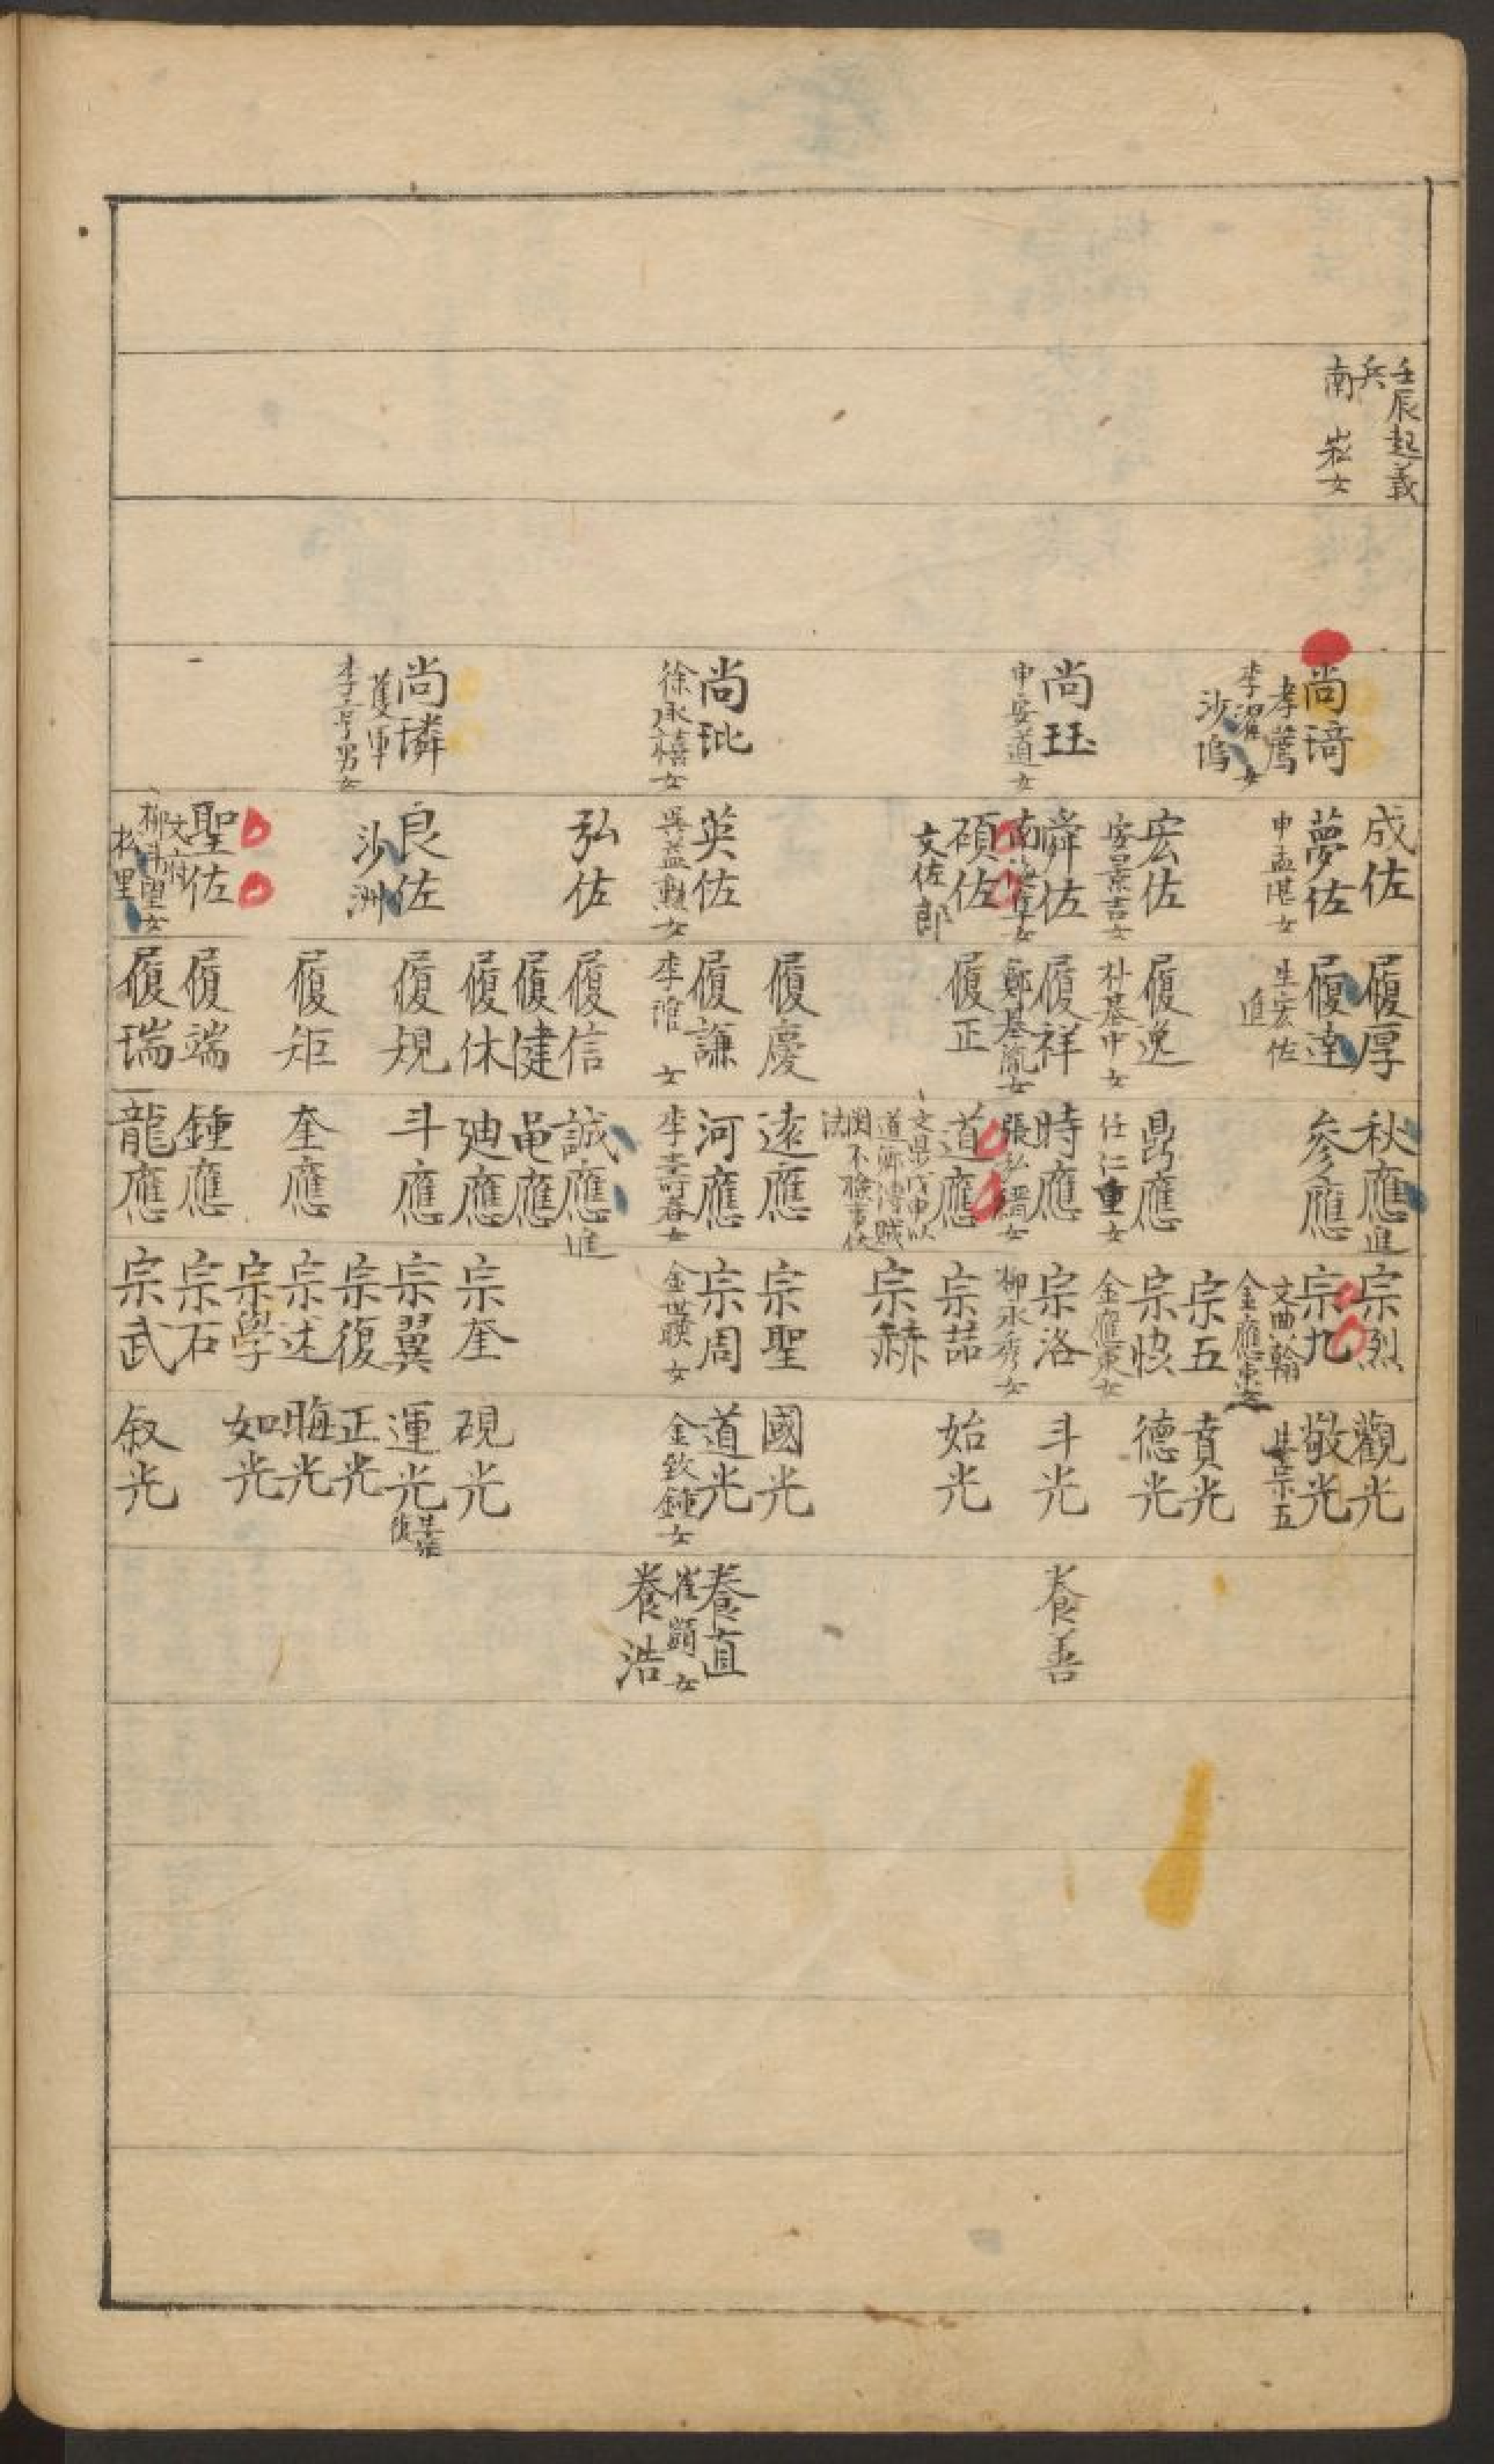 壬辰起義
兵
南崧女
尚琦
孝薦
李濯女
沙塢
尚珏
申安道女
尚玭
徐永禧女
尚璘
護軍
李亨男女
成佐
夢佐
申孟湛女
宏佐
安景吉女
舜佐
碩佐
文佐郎
英佐
吳益勳女
弘佐
良佐
沙洲
聖佐
文府
柳斗望女
松里
履厚
履達
生宏佐
進
履逸
朴基中女
履祥
鄭基胤女
履正
履慶
履謙
李女
履信
履健
履休
履規
履矩
履端
履瑞
秋應進
參應
鼎應
任仁重女
時應
張弘縉女
道應
文縣戊申以
道鄉溥賊
関不檢事伏
法
遠應
河應
李壽春女
誠應進
黽應
廸應
斗應
奎應
鍾應
龍應
宗烈
宗九
文典翰
金應東女
宗五
宗恢
金應東女
宗洛
柳永秀女
宗喆
宗赫
宗聖
宗周
金世瑛女
宗奎
宗翼
宗復
宗述
宗學
宗石
宗武
觀光
敬光
生宗五
賁光
德光
斗光
始光
國光
道光
金欽鍾女
硯光
運光
生宗復
正光
晦光
如光
叙光
養善
養直
崔女
養浩